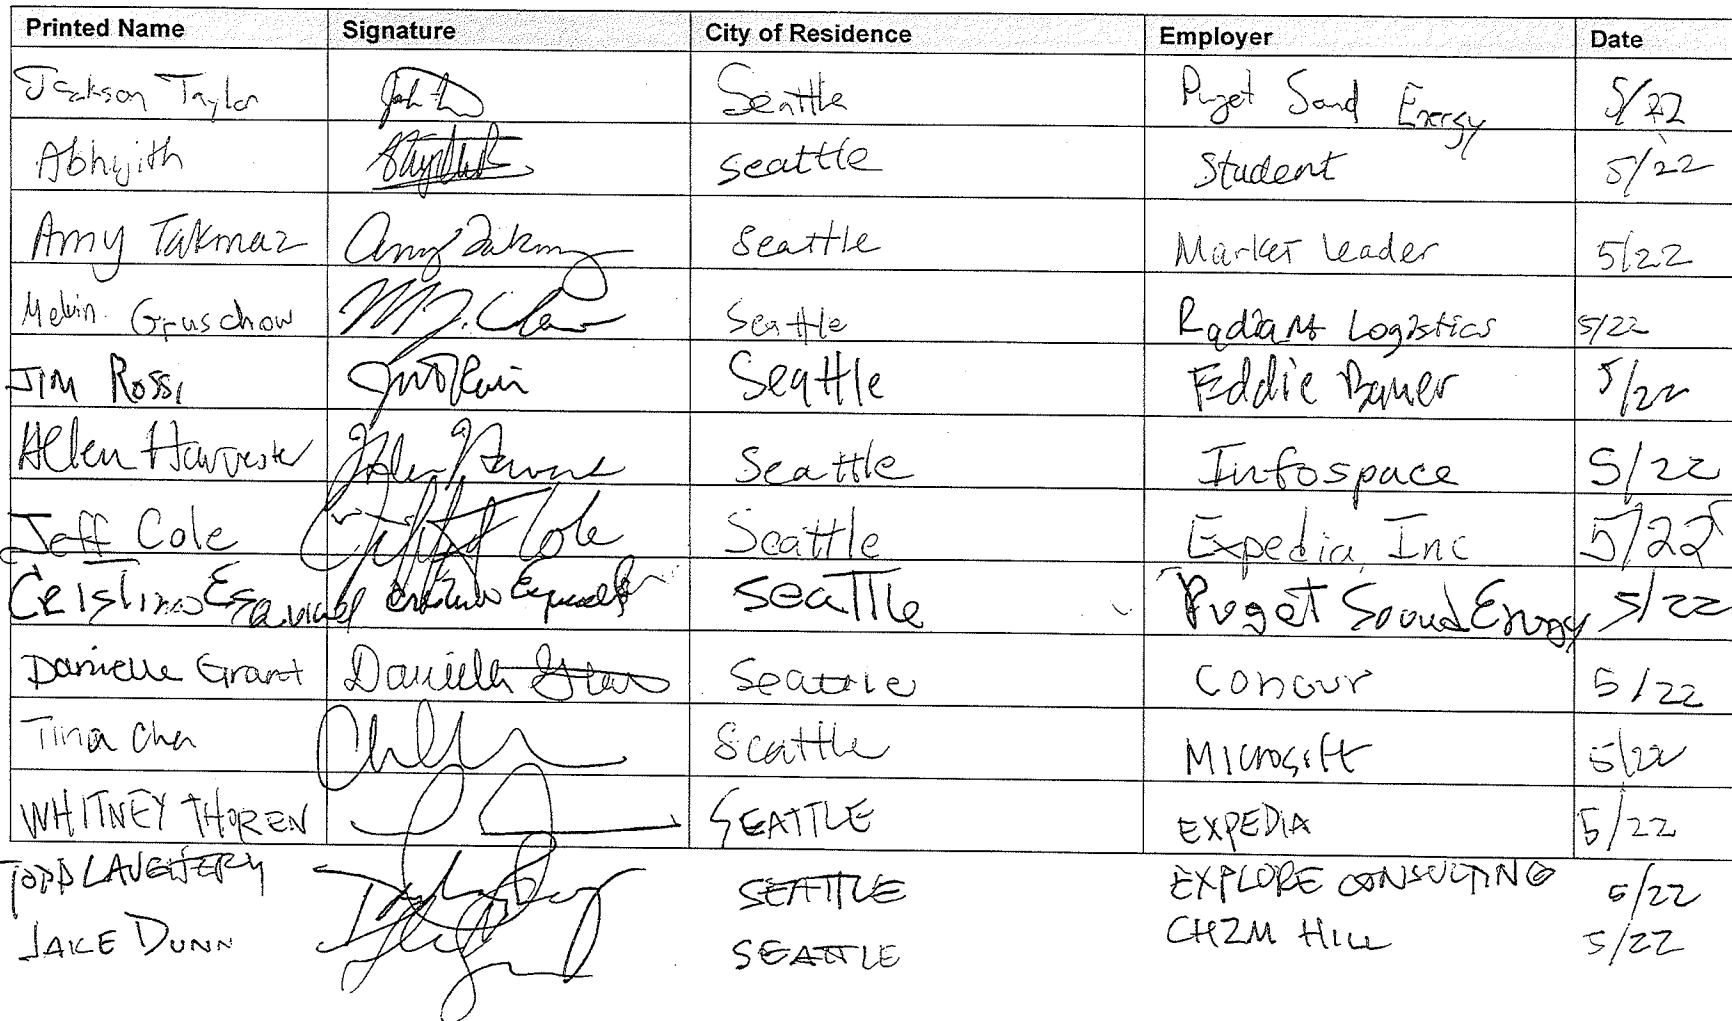 Printed Name Signature City of Residence Employer Date
Jackson Taylor Seattle Puget Sound Energy 5/22
Abhyjith seattle Student 5/22
Amy Takmaz Amy Takmaz Seattle Market Leader 5/22
Melvin Gruschow Seattle Radiant Logistics 5/22
JIM ROSSI Seattle Eddie Bauer 5/22
Helen Harvester Seattle Infospace 5/22
Jeff Cole Cole Seattle Expedia, Inc 5/22
Cristina Esquivel SeaTTle Puget Sound Energy 5/22
Danielle Grant Danielle Seattle Concur 5/22
Tina Cha Seattle Microsoft 5/22
WHITNEY THOREN SEATTLE EXPEDIA 5/22
TODD LAUGHERY SEATTLE EXPLORE CONSULTING 5/22
JAKE DUNN SEATTLE CH2M HILL 5/22